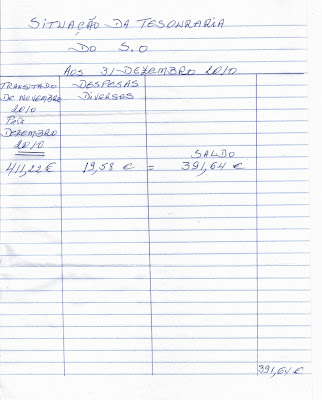 SITUAÇÃO DA TESOURARIA
DO S.O
AOS 31-DEZEMBRO 2010
TRANSITADO
DE NOVEMBRO
2010
PARA
DEZEMBRO
2010
DESPESAS
DIVERSAS
SALDO
411,22 € 19,58 € = 391,64 €
391,64 €